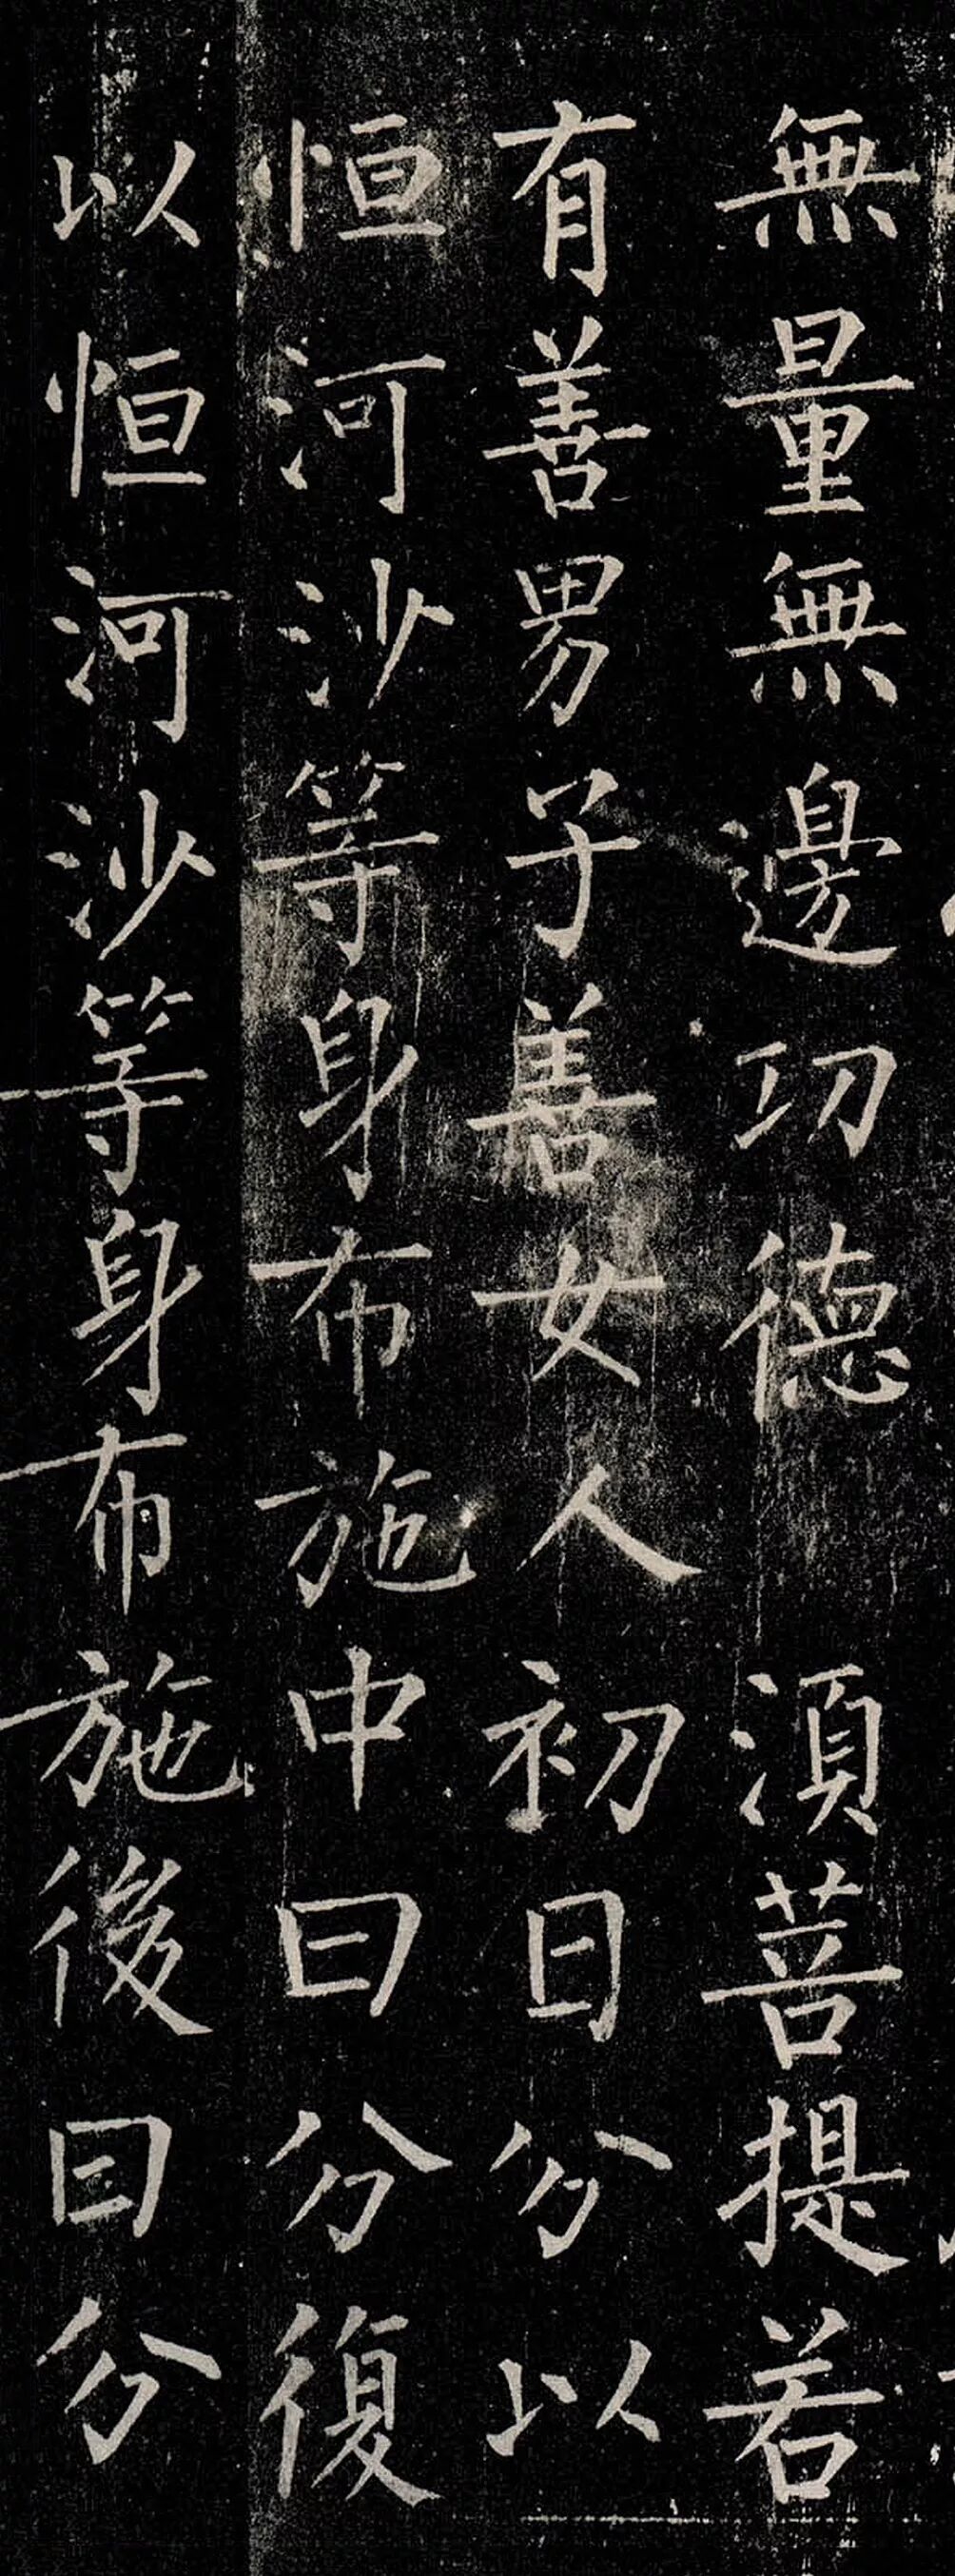 無量無邊功德　須菩提若
有善男子善女人初日分以
恒河沙等身布施中日分復
以恒河沙等身布施後日分